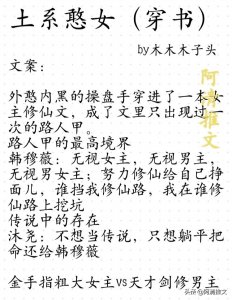 土系憨女（穿书）
by木木木子头
文案：
外憨内黑的操盘手穿进了一本女
主修仙文，成了文里只出现过一
次的路人甲。
路人甲的最高境界
韩穆薇：无视女主，无视男主，
无视男女主；努力修仙给自己挣
面儿，谁挡我修仙路，我在谁修
仙路上挖坑
传说中的存在
沐尧：不想当传说，只想躺平把
命还给韩穆薇
金手指粗大女主VS天才剑修男主
头条@阿満推文